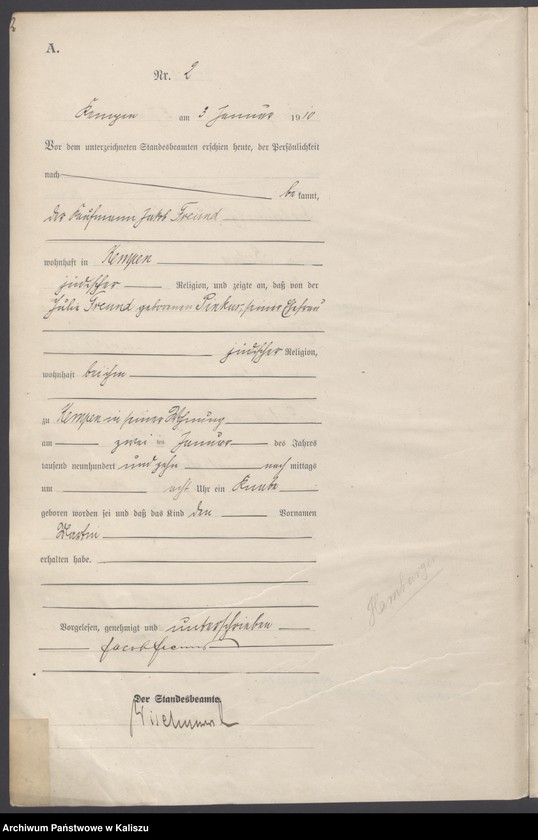 A.
Nr. 2
Kempen am 3 Januar 1910
Vor dem unterzeichneten Standesbeamten erschien heute, der Persönlichkeit
nach
be kannt,
der Kaufmann Jakob Freund
wohnhaft in Kempen
jüdischer Religion, und zeigte an, daß von der
Julie Freund geborenen Pinkus, seiner Ehefrau
jüdischer Religion,
wohnhaft bei ihm
zu Kempen in seiner Wohnung
am zwei ten Januar des Jahres
tausend neunhundert und zehn nach mittags
um acht Uhr ein Knabe
geboren worden sei und daß das Kind den Vornamen
Martin
erhalten habe.
Hamburger
Vorgelesen, genehmigt und unterschrieben
Jacob Freund
Der Standesbeamte.
Archiwum Państwowe w Kaliszu